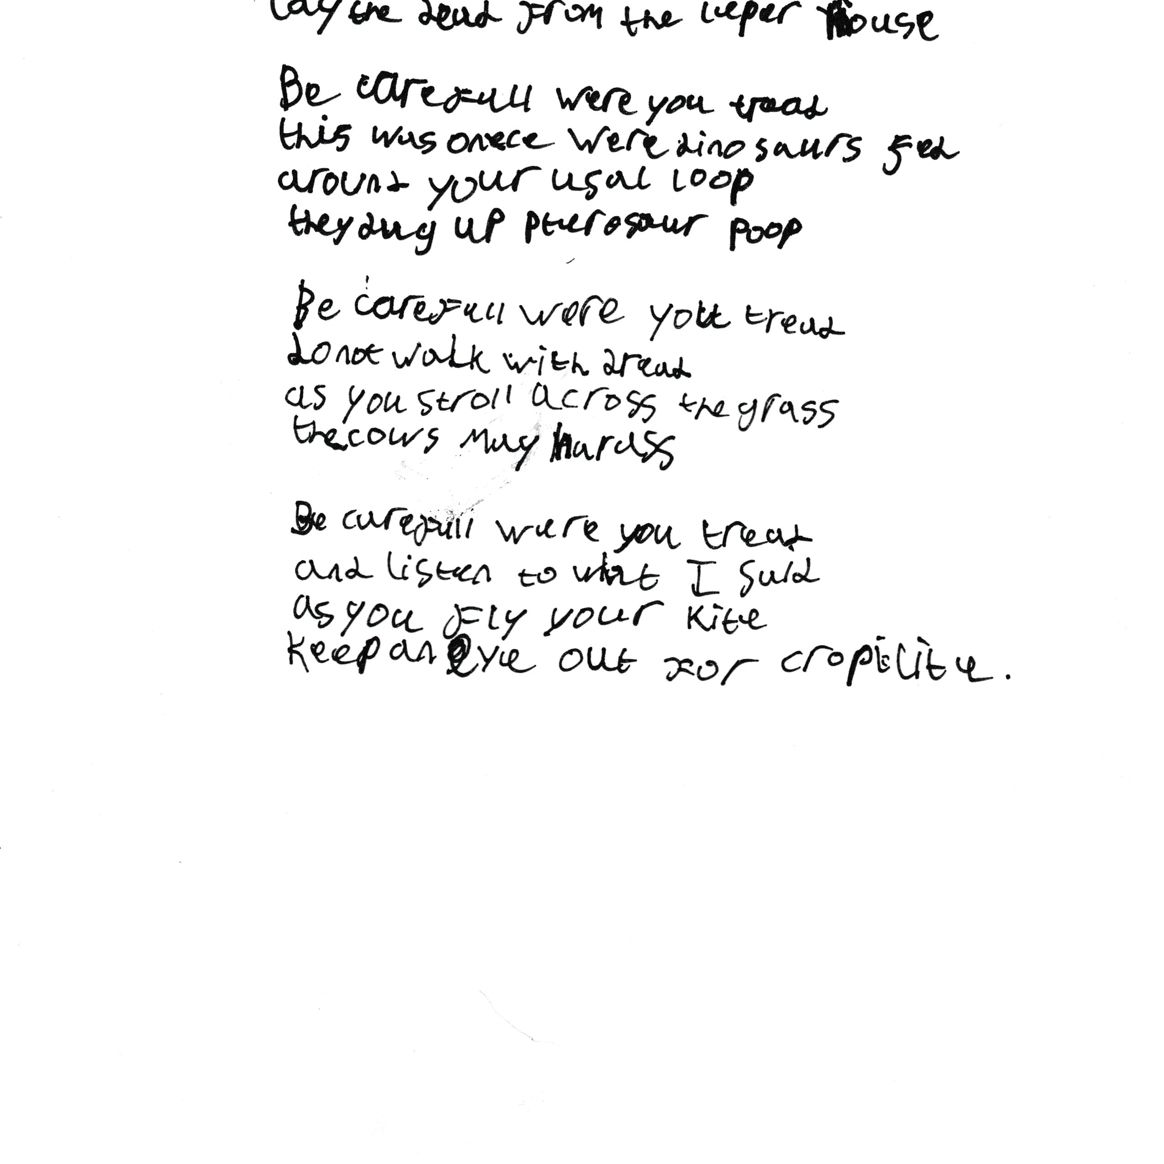 lay the dead from the leper house
Be carefull were you tread
this was onece were dinosaurs fed
around your usal loop
they dug up pterosaur poop
Be carefull were you tread
do not walk with dread
as you stroll across the grass
the cows may harass
Be carefull were you tread
and listen to what I said
as you fly your kite
keep an eye out for cropilite.